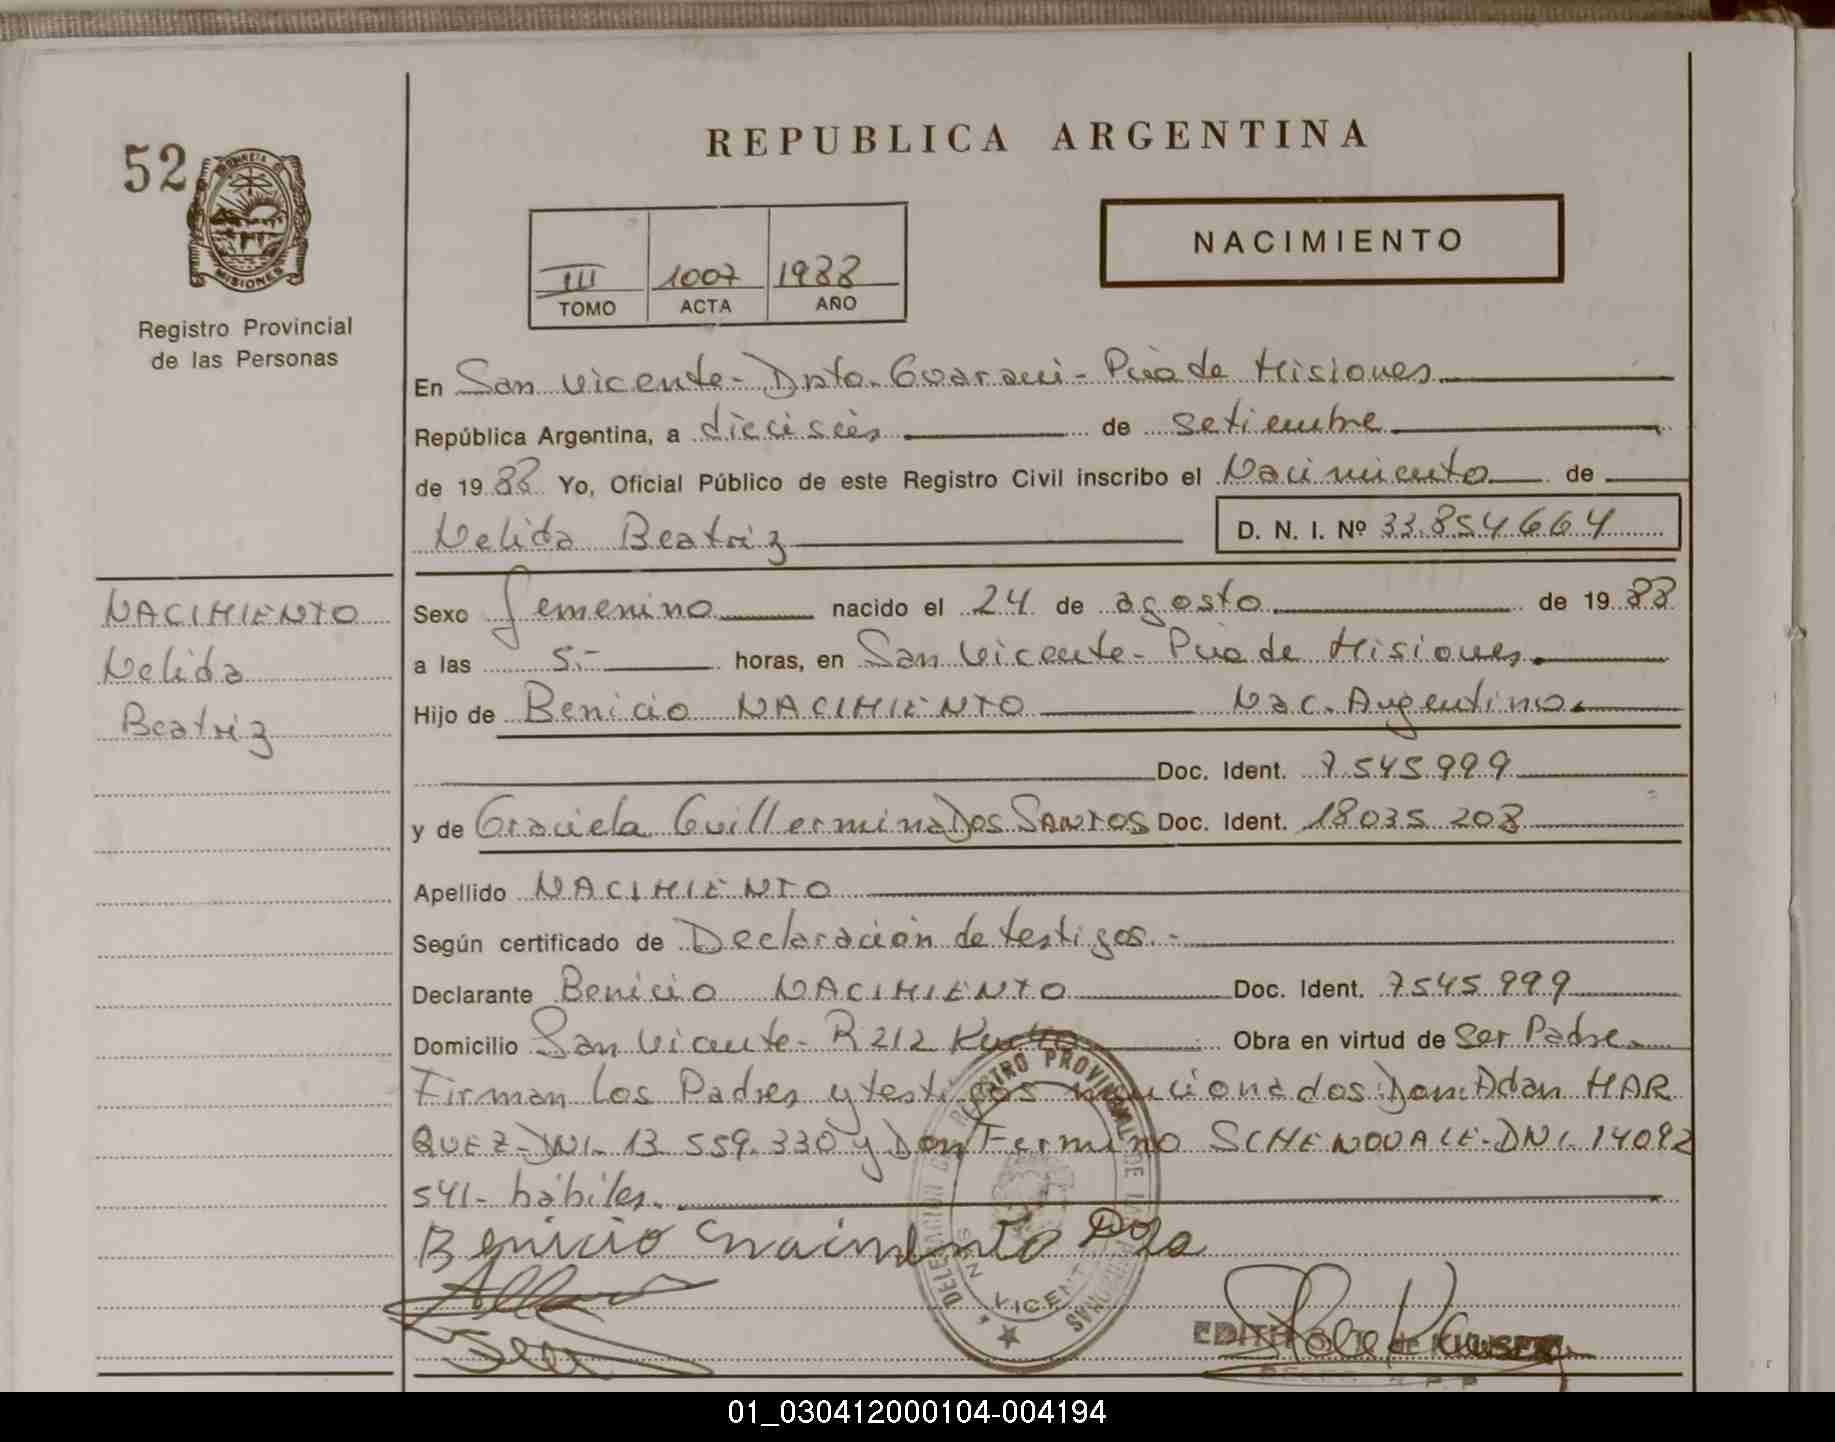 REPUBLICA ARGENTINA
52
BONETA
MISIONES
Registro Provincial
de las Personas
III 1007 1988
TOMO ACTA AÑO
NACIMIENTO
En San Vicente - Dpto. Guarani - Pcia de Misiones
República Argentina, a dieciséis de setiembre
de 1988 Yo, Oficial Público de este Registro Civil inscribo el Nacimiento de
Nelida Beatriz D. N. I. Nº 33.854.664
NACIMIENTO
Nelida
Beatriz
Sexo femenino nacido el 24 de agosto de 1988
a las 5.- horas, en San Vicente - Pcia de Misiones.
Hijo de Benicio NACIMIENTO Nac. Argentino.
Doc. Ident. 7545999
y de Graciela Guillermina Dos SANTOS Doc. Ident. 18035 208
Apellido NACIMIENTO
Según certificado de Declaración de testigos.-
Declarante Benicio NACIMIENTO Doc. Ident. 7545 999
Domicilio San Vicente - R 212 Obra en virtud de ser Padre.
Firman los Padres y testigos mencionados: Don: Adan MAR
QUEZ - DNI. 13 559.330 y Don Fermino - DNI. 14092
541 - hábiles.
Benicio Dos
DELEGACION REGISTRO PROVINCIAL DE LAS PERSONAS
SAN VICENTE
EDITH de
01_030412000104-004194